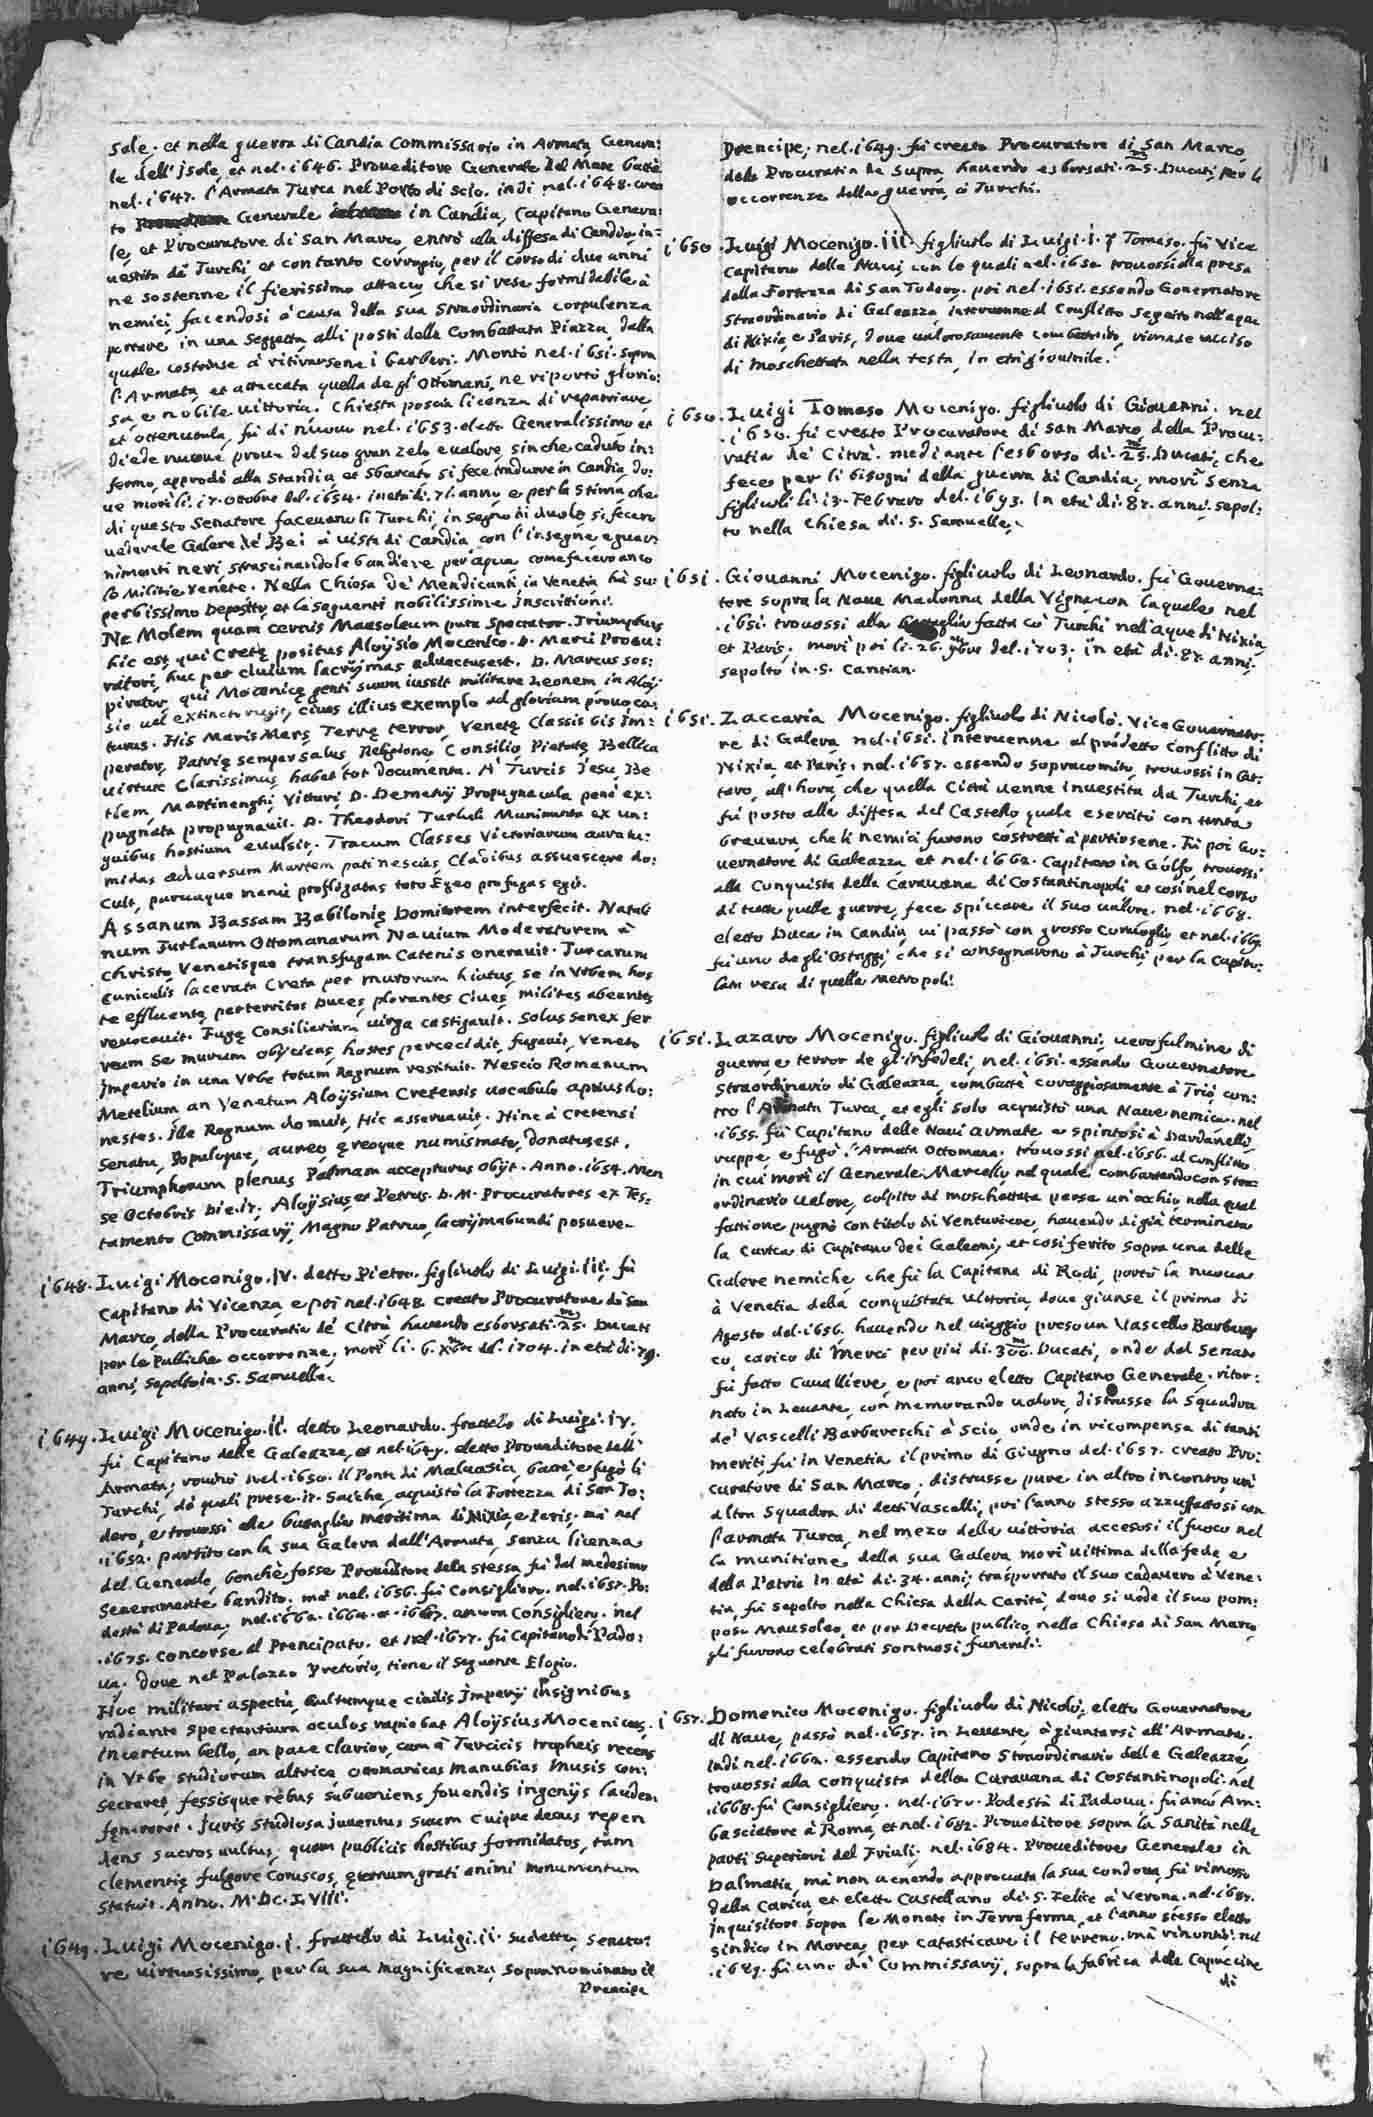 sole. et nella guerra di Candia Commissario in Armata Genera:
le dell'isole, et nel. 1646. Proveditore Generale del Mare battè
nel. 1647. l'Armata Turca nel Porto di Scio. indi nel. 1648. crea
to Generale in Candia, Capitano Genera:
le, et Procuratore di San Marco, entrò alla diffesa di Candia in=
uestita dà Turchi, et con tanto corraggio, per il corso di due anni
ne sostenne il fierissimo attacco che si rese formidabile à
nemici, facendosi à causa della sua straordinaria corpulenza
portare in una Seggetta alli posti della Combattuta Piazza, dalla
quale costrinse à ritirarsene i barbari. Montò nel. 1651. sopra
l'Armata, et attaccata quella degl'Ottomani, ne riportò glorio:
sa, e nobile uittoria. Chiesta poscia licenza di repatriare
et ottenutala, fù di nuouo nel. 1653. eletto Generalissimo et
diede nuoue proue del suo gran zelo, e ualore, sinche caduto in:
fermo, approdò alla Standia, et sbarcato si fece tradurre in Candia, do:
ue morì li. 17. ottobre del. 1654. in età di. 71. anno, e per la stima, che
di questo Senatore faceuano li Turchi, in segno di duolo si fecero
uedere le Galere de' Bei à uista di Candia con l'insegne, e guar:
nimenti neri, strascinando le bandiere per acqua, come fecero anco
le Militie Venete. Nella Chiesa de' Mendicanti in Venetia hà su:
perbissimo Deposito, et le seguenti nobilissime Inscrittioni.
Ne Molem quam cernis Mausoleum puta Spectator. Triumphus
hic est, qui Cretę positus Aloysio Mocenico. D. Marci Procu:
ratori, huc per ciuium lacrymas aduectus est. D. Marcus sos:
pirator, qui Mocenicę genti suum iussit militare Leonem in Aloy
sio uel extincto rugit, ciues illius exemplo ad gloriam prouoca
turus. His Maris Mars, Terrę terror, Venetę Classis bis Im:
perator, Patrię semper salus, Religione, Consilio, Pietate, Bellica
uirtute Clarissimus, habet tot documenta. A' Turcis Jesu, Be
tlem, Martinenghi, Vitturi, D. Demetrij Propugnacula pene ex:
pugnata propugnauit. D. Theodori Turluli Munimenta ex un:
guibus hostium euulsit. Tracum Classes Victoriarum auratu:
midas aduersum Martem pati nescias, Cladibus assuescere do:
cuit, paruaque manu profligatas toto Egeo profugas egit.
Assanum Bassam Babilonię Domitorem interfecit. Natali
num Furlanum Ottomanarum Nauium Moderatorem à
Christo Venetisque transfugam Catenis onerauit. Turcarum
cuniculis lacerata Creta per murorum hiatus, se in Vrbem hos
te effluente, perterritos Duces, plorantes Ciues, milites abeuntes
reuocauit. Fugę Consiliarium uirga castigauit. Solus Senex fer
reum se murum obijciens, hostes percecidit, fugauit, Veneto
Imperio in una Vrbe totum Regnum restituit. Nescio Romanum
Metelium an Venetum Aloysium Cretensis uocabulo aptius ho:
nestes. Ille Regnum domuit, Hic asseruauit. Hinc à Cretensi
Senatu, Populoque, aureo, ęreoque numismate, donatus est.
Triumphorum plenus Palmam accepturus obijt. Anno. 1654. Men
se Octobris Die. 17. Aloysius, et Petrus. D. M. Procuratores ex Tes:
tamento Commissarij, Magno Patruo, lacrymabundi posuere.
1648. Luigi Mocenigo. IV. detto Pietro. figliuolo di Luigi. III. fù
Capitano di Vicenza, e poi nel. 1648. creato Procuratore di San
Marco, della Procuratia de' Citrà hauendo esborsati. 25. m Ducati
per le Publiche occorrenze, morì li. 6. Xbre del. 1704. in età di. 79.
anni, sepolto in. S. Samuelle.
1649. Luigi Mocenigo. II. detto Leonardo. frattello di Luigi. IV.
fù Capitano delle Galeazze, et nel. 1649. eletto Proueditore dell'
Armata; rouinò nel. 1650. il Ponte di Maluasia, battè, e fugò li
Turchi, dà quali prese. 17. Saiche, acquistò la Fortezza di San To:
doro, e trouossi alla battaglia maritima di Nixia, e Paris; mà nel
.1652. partito con la sua Galera dall'Armata, senza licenza
del Generale, benchè fosse Proueditore della stessa, fù dal medesimo
Seueramente bandito. mà nel. 1656. fù Consigliero. nel. 1657. Po:
destà di Padoua. nel. 1662. 1664. e. 1667. ancora Consigliero. nel
.1675. concorse al Prencipato. et nel. 1677. fù Capitano di Pado:
ua. doue nel Palazzo Pretorio, tiene il seguente Elogio.
Hoc militari aspectu, cultumque ciuilis Imperij insignibus
radiante spectantium oculos rapiebat Aloysius Mocenicus,
incertum bello, an pace clarior, cum à Turcicis tropheis recens
in Vrbe studiorum altrice ottomanicas manubias Musis con:
secraret fessisque rebus subueniens fouendis ingenijs laudem
fęneraret. Juris Studiosa juuentus suum cuique decus repen
dens sacros uultus, quam publicis hostibus formidatos, tam
clementię fulgore coruscos, ęternum grati animi monumentum
statuit. Anno. M. DC. LVIII.
1649. Luigi Mocenigo. I. frattello di Luigi. II. sudetto, Senato:
re uirtuosissimo, per la sua magnificenza, sopranominato il
Prencipe
Prencipe, nel. 1649. fù creato Procuratore di San Marco,
della Procuratia de Supra, hauendo esborsati. 25. m Ducati, per le
occorrenze della guerra, co' Turchi.
1650. Luigi Mocenigo. III. figliuolo di Luigi. I. q Tomaso. fù Vice
Capitano delle Naui, con le quali nel. 1650. trouossi alla presa
della Fortezza di San Todoro. poi nel. 1651. essendo Gouernatore
Straordinario di Galeazza, interuenne al Conflitto seguito nell'aque
di Nixia, e Paris, doue ualorosamente combattendo, rimase ucciso
di Moschettata nella testa, in età giouinile.
1650. Luigi Tomaso Mocenigo. figliuolo di Giouanni. nel
.1650. fù creato Procuratore di San Marco della Procu:
ratia de' Citrà. mediante l'esborso di. 25. m Ducati, che
fece per li bisogni della guerra di Candia, morì senza
figliuoli li. 13. Febraro del. 1693. in età di. 87. anni. sepol:
to nella Chiesa di. S. Samuelle.
1651. Giouanni Mocenigo. figliuolo di Leonardo. fù Gouerna:
tore sopra la Naue Madonna della Vigna con la quale nel
.1651. trouossi alla battaglia fatta co' Turchi nell'aque di Nixia,
et Paris. morì poi li. 26. 9bre del. 1703. in età di. 87. anni.
sepolto in. S. Cantian.
1651. Zaccaria Mocenigo. figliuolo di Nicolò. Vice Gouernato:
re di Galera, nel. 1651. interuenne al predetto conflitto di
Nixia, et Paris. nel. 1657. essendo Sopracomito, trouossi in Cat:
taro, all'hora, che quella Città uenne inuestita da Turchi, et
fù posto alla diffesa del Castello, quale esercitò con tanta
brauura, che li nemici furono costretti à partirsene. Fù poi Go:
uernatore di Galeazza, et nel. 1662. Capitano in Golfo, trouossi
alla Conquista della Carauana di Costantinopoli, et così nel corso
di tutte quelle guerre, fece spiccare il suo ualore. nel. 1668.
eletto Duca in Candia, ui passò con grosso Conuoglio, et nel. 1669.
fù uno degl'Ostaggi, che si consegnarono à Turchi, per la Capito:
latta resa di quella Metropoli.
1651. Lazaro Mocenigo. figliuolo di Giouanni, uero fulmine di
guerra, e terror degl'infedeli, nel. 1651. essendo Gouernatore
straordinario di Galeazza, combattè coraggiosamente à Trio, con:
tro l'Armata Turca, et egli solo acquistò una Naue nemica. nel
.1655. fù Capitano delle Naui armate, e spintosi à Dardanelli,
ruppe, e fugò l'Armata Ottomana. trouossi nel. 1656. al conflitto
in cui morì il Generale Marcello, nel quale combattendo con stra:
ordinario ualore, colpito di moschettata perse un'occhio, nella qual
fattione pugnò con titolo di Venturiere, hauendo di già terminata
la Carica di Capitano dei Galeoni, et così ferito sopra una delle
Galere nemiche, che fù la Capitana di Rodi, portò la nuoua
à Venetia della conquistata uittoria, doue giunse il primo di
Agosto del. 1656. hauendo nel uiaggio preso un Vascello Barbares
co, carico di Merci per più di. 300. m Ducati, onde dal Senato
fù fatto Caualliere, e poi anco eletto Capitano Generale. ritor:
nato in Leuante, con memorando ualore, distrusse la Squadra
de' Vascelli Barbareschi à Scio, onde in ricompensa di tanti
meriti, fù in Venetia il primo di Giugno del. 1657. creato Pro:
curatore di San Marco; distrusse pure in altro incontro, un'
altra Squadra di detti Vascelli, poi l'anno stesso azzuffatosi con
l'armata Turca, nel mezo della uittoria accesosi il fuoco nel
la munitione della sua Galera, morì uittima della fede, e
della Patria in età di. 34. anni; trasportato il suo cadauero à Vene:
tia, fù sepolto nella Chiesa della Carità, doue si uede il suo pom:
poso Mausoleo, et per Decreto publico, nella Chiesa di San Marco
gli furono celebrati sontuosi funerali.
1657. Domenico Mocenigo. figliuolo di Nicolò, eletto Gouernatore
di Naue, passò nel. 1657. in Leuante, à giuntarsi all'Armata.
Indi nel. 1662. essendo Capitano Straordinario delle Galeazze,
trouossi alla conquista della Carauana di Costantinopoli. nel
.1668. fù Consigliero. nel. 1670. Podestà di Padoua. fù anco Am:
basciatore à Roma, et nel. 1682. Proueditore sopra la Sanità nelle
parti superiori del Friuli. nel. 1684. Proueditore Generale in
Dalmatia, mà non uenendo approuata la sua condotta, fù rimosso
dalla Carica, et eletto Castellano di. S. Felice à Verona. nel. 1687.
Inquisitore sopra le Monete in Terra ferma, et l'anno stesso eletto
Sindico in Morea, per catasticare il terreno. mà rinontiò. nel
.1689. fù uno di Commissarij, sopra la fabrica delle Capuccine
di